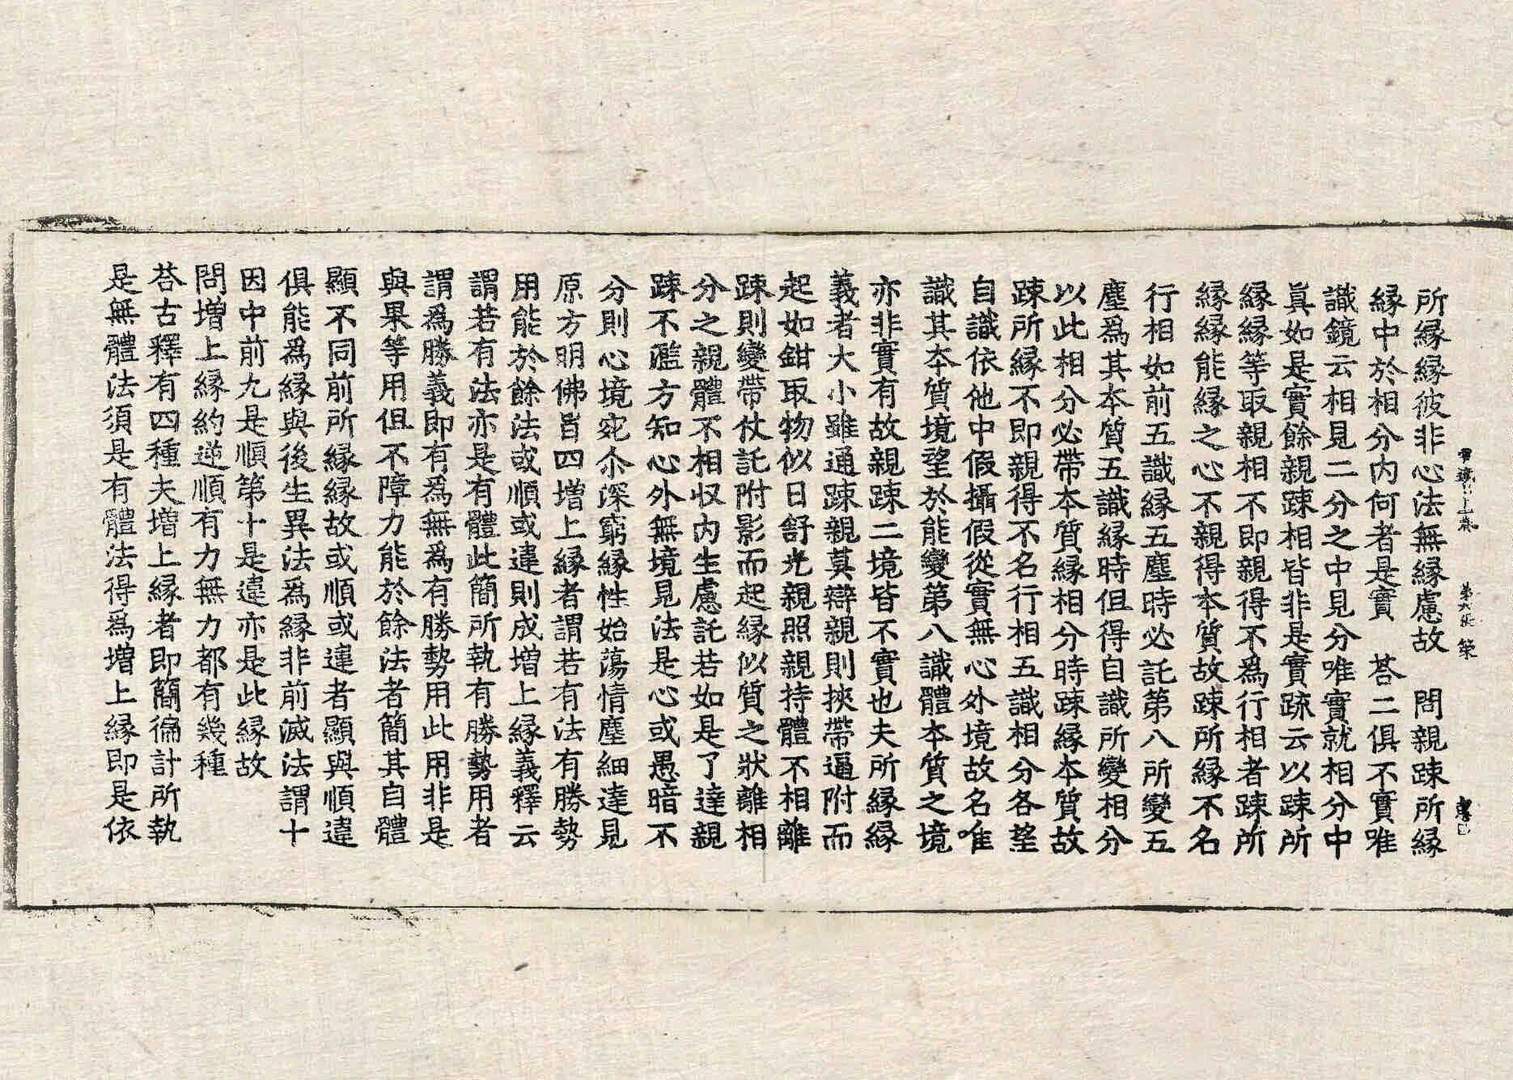 所縁縁彼非心法無縁慮故　問親踈所縁
縁中於相分内何者是實　荅二俱不實唯
識鏡云相見二分之中見分唯實就相分中
眞如是實餘親踈相皆非是實䟽云以踈所
縁縁等取親相不即親得不爲行相者踈所
縁縁能縁之心不親得本質故踈所縁不名
行相如前五識縁五塵時必託第八所變五
塵爲其本質五識縁時但得自識所變相分
以此相分必帶本質縁相分時踈縁本質故
踈所縁不即親得不名行相五識相分各望
自識依他中假攝假從實無心外境故名唯
識其本質境望於能變第八識體本質之境
亦非實有故親踈二境皆不實也夫所縁縁
義者大小雖通踈親莫辯親則挾帶逼附而
起如鉗取物似日舒光親照親持體不相離
踈則變帶仗託附影而起縁似質之狀離相
分之親體不相収内生慮託若如是了達親
踈不濫方知心外無境見法是心或愚暗不
分則心境宛尒深窮縁性始蕩情塵細達見
原方明佛旨四増上縁者謂若有法有勝勢
用能於餘法或順或違則成増上縁義釋云
謂若有法亦是有體此簡所執有勝勢用者
謂爲勝義即有爲無爲有勝勢用此用非是
與果等用但不障力能於餘法者簡其自體
顯不同前所縁縁故或順或違者顯與順違
俱能爲縁與後生異法爲縁非前滅法謂十
因中前九是順第十是違亦是此縁故
問増上縁約逆順有力無力都有幾種
荅古釋有四種夫増上縁者即簡徧計所執
是無體法須是有體法得爲増上縁即是依